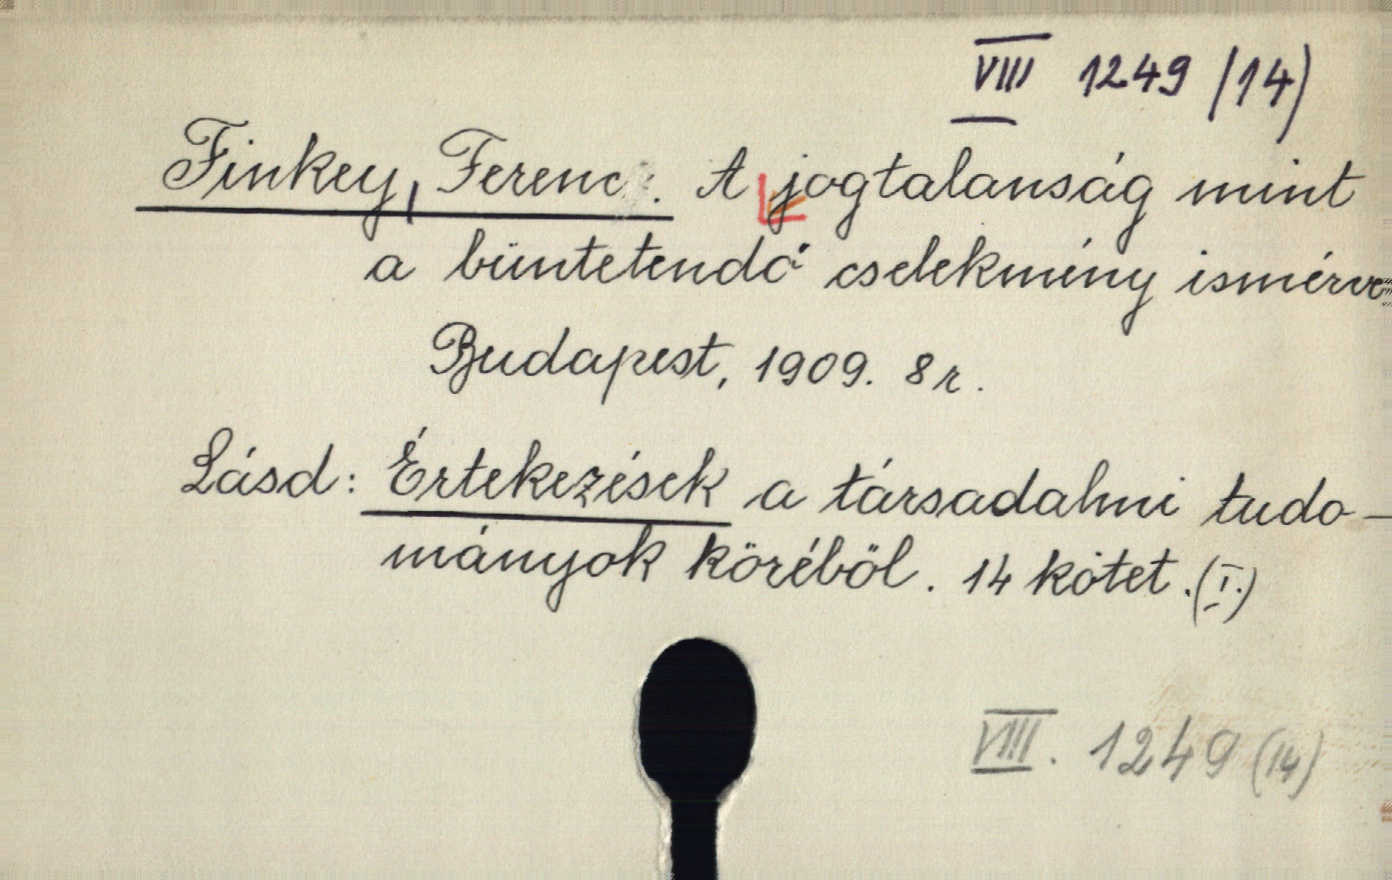 VIII 1249 (14)
Finkey, Ferenc. A jogtalanság mint
a büntetendő cselekmény ismérve
Budapest, 1909. 8r.
Lásd: Értekezések a társadalmi tudo-
mányok köréből. 14 kötet. (I.)
VIII. 1249 (14)